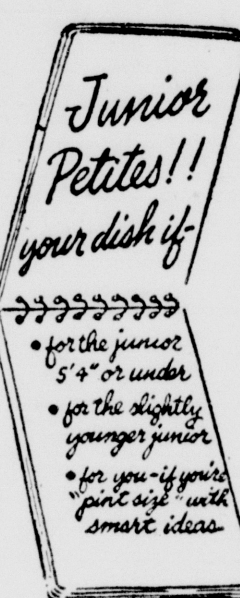 Junior
Petites!!
your dish if-
• for the junior
5'4" or under
• for the slightly
younger junior
• for you-if you're
"pint size" with
smart ideas